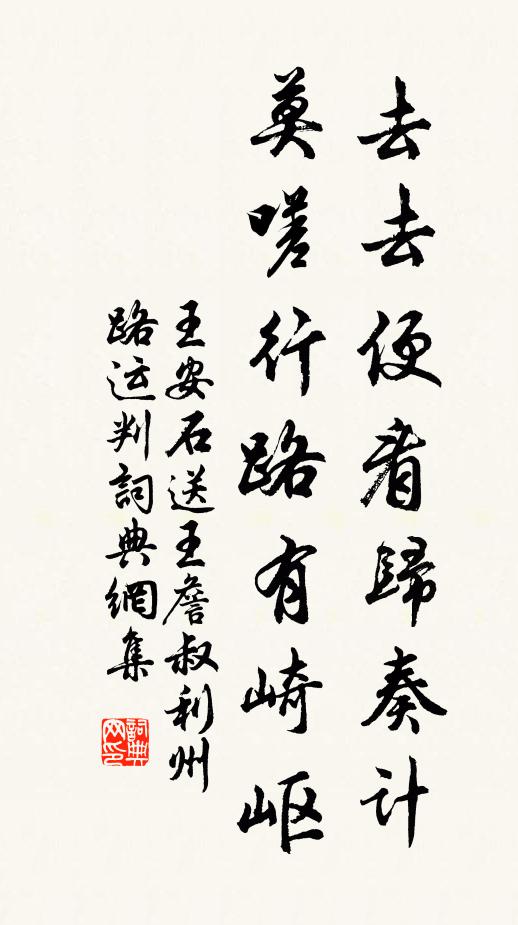 去去便看歸奏計
莫嗟行路有崎岖
王安石送王詹叔利州
路运判詞典網集
詞典网印